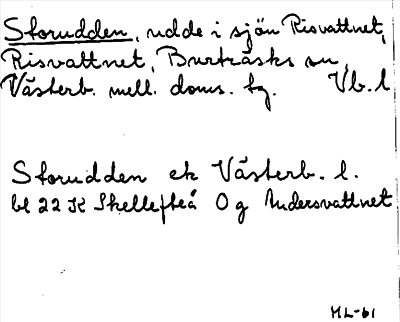 Storudden, udde i sjön Risvattnet,
Risvattnet, Burträsks sn,
Västerb. mell. doms. tg. Vb. l
Storudden ek Västerb. l.
bl 22 K Skellefteå 0 g Andersvattnet
ML-61